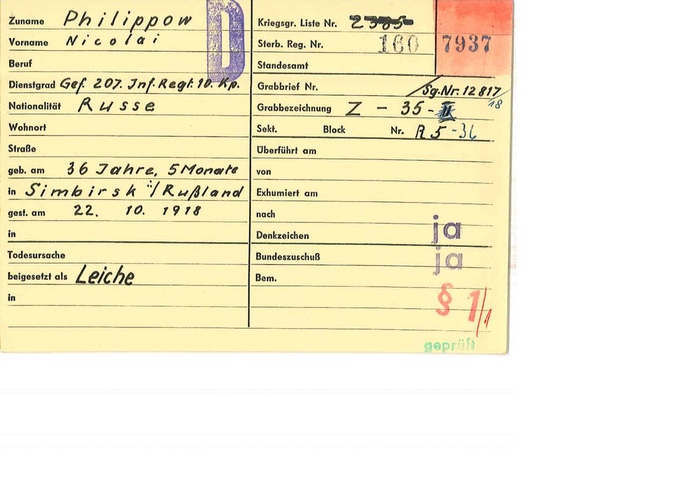 Zuname Philippow
Vorname Nicolai
Beruf
Dienstgrad Gef. 207. Inf. Regt. 10. Kp.
Nationalität Russe
Wohnort
Straße
geb. am 36 Jahre, 5 Monate
in Simbirsk /Rußland
gest. am 22. 10. 1918
in
Todesursache
beigesetzt als Leiche
in
D
Kriegsgr. Liste Nr.
Sterb. Reg. Nr. 160 7937
Standesamt
Grabbrief Nr. /Sg.Nr. 12817/18
Grabbezeichnung Z - 35-
Sekt. Block Nr. R 5 -36
Überführt am
von
Exhumiert am
nach
Denkzeichen ja
Bundeszuschuß ja
Bem.
§ 1/1
geprüft